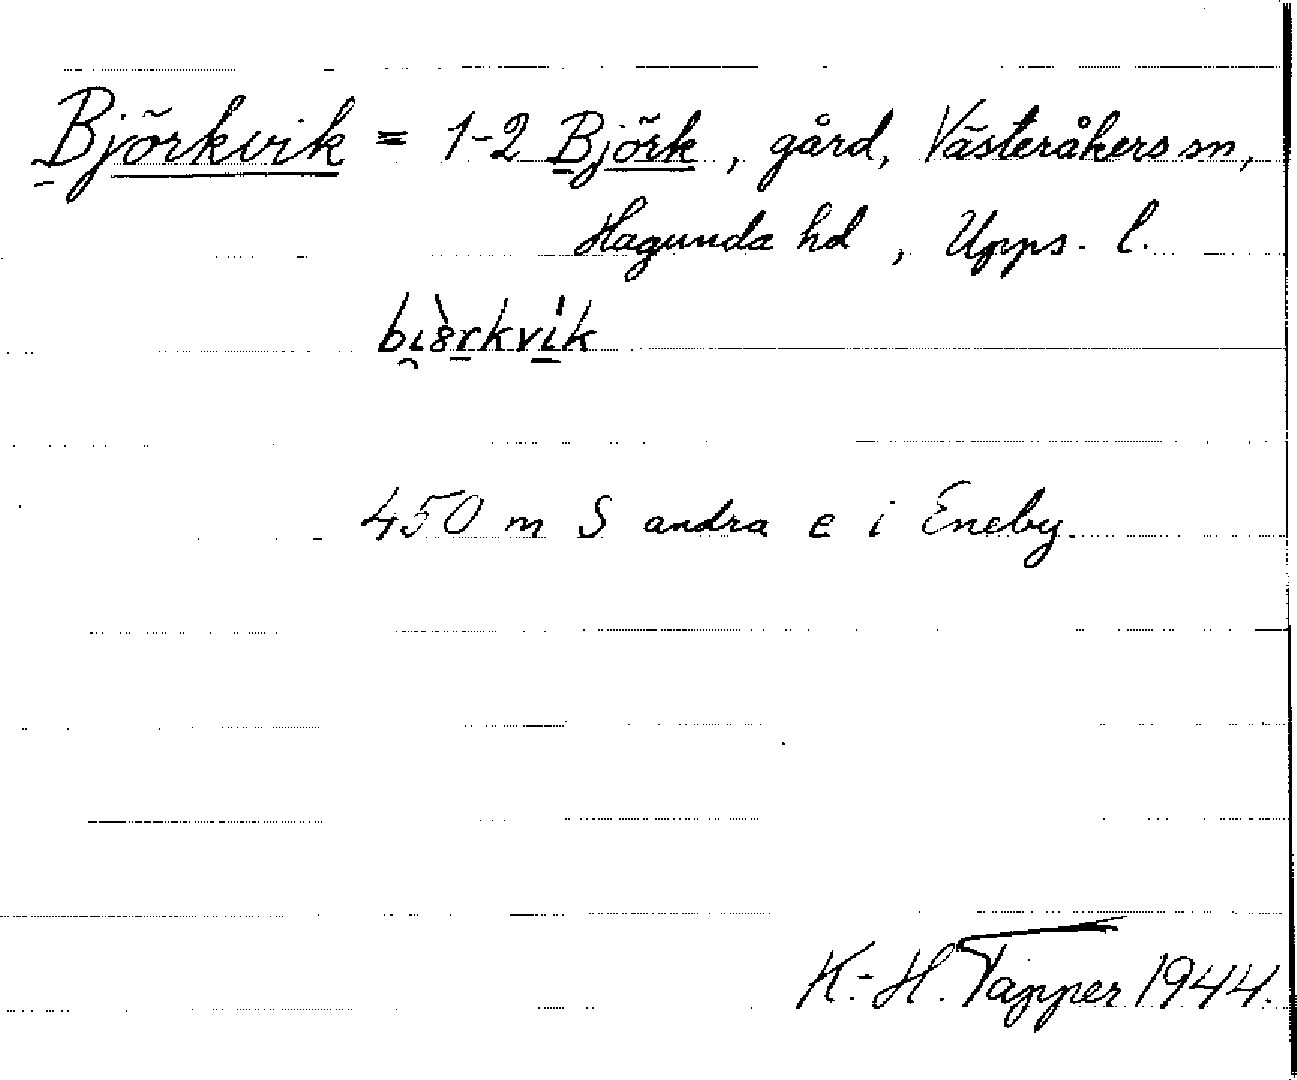 Björkvik = 1-2 Björk, gård, Västeråkers sn,
Hagunda hd, Upps. l.
bi̯ö̀rkvík
450 m S andra e i Eneby.
K.-H. Tapper 1944.